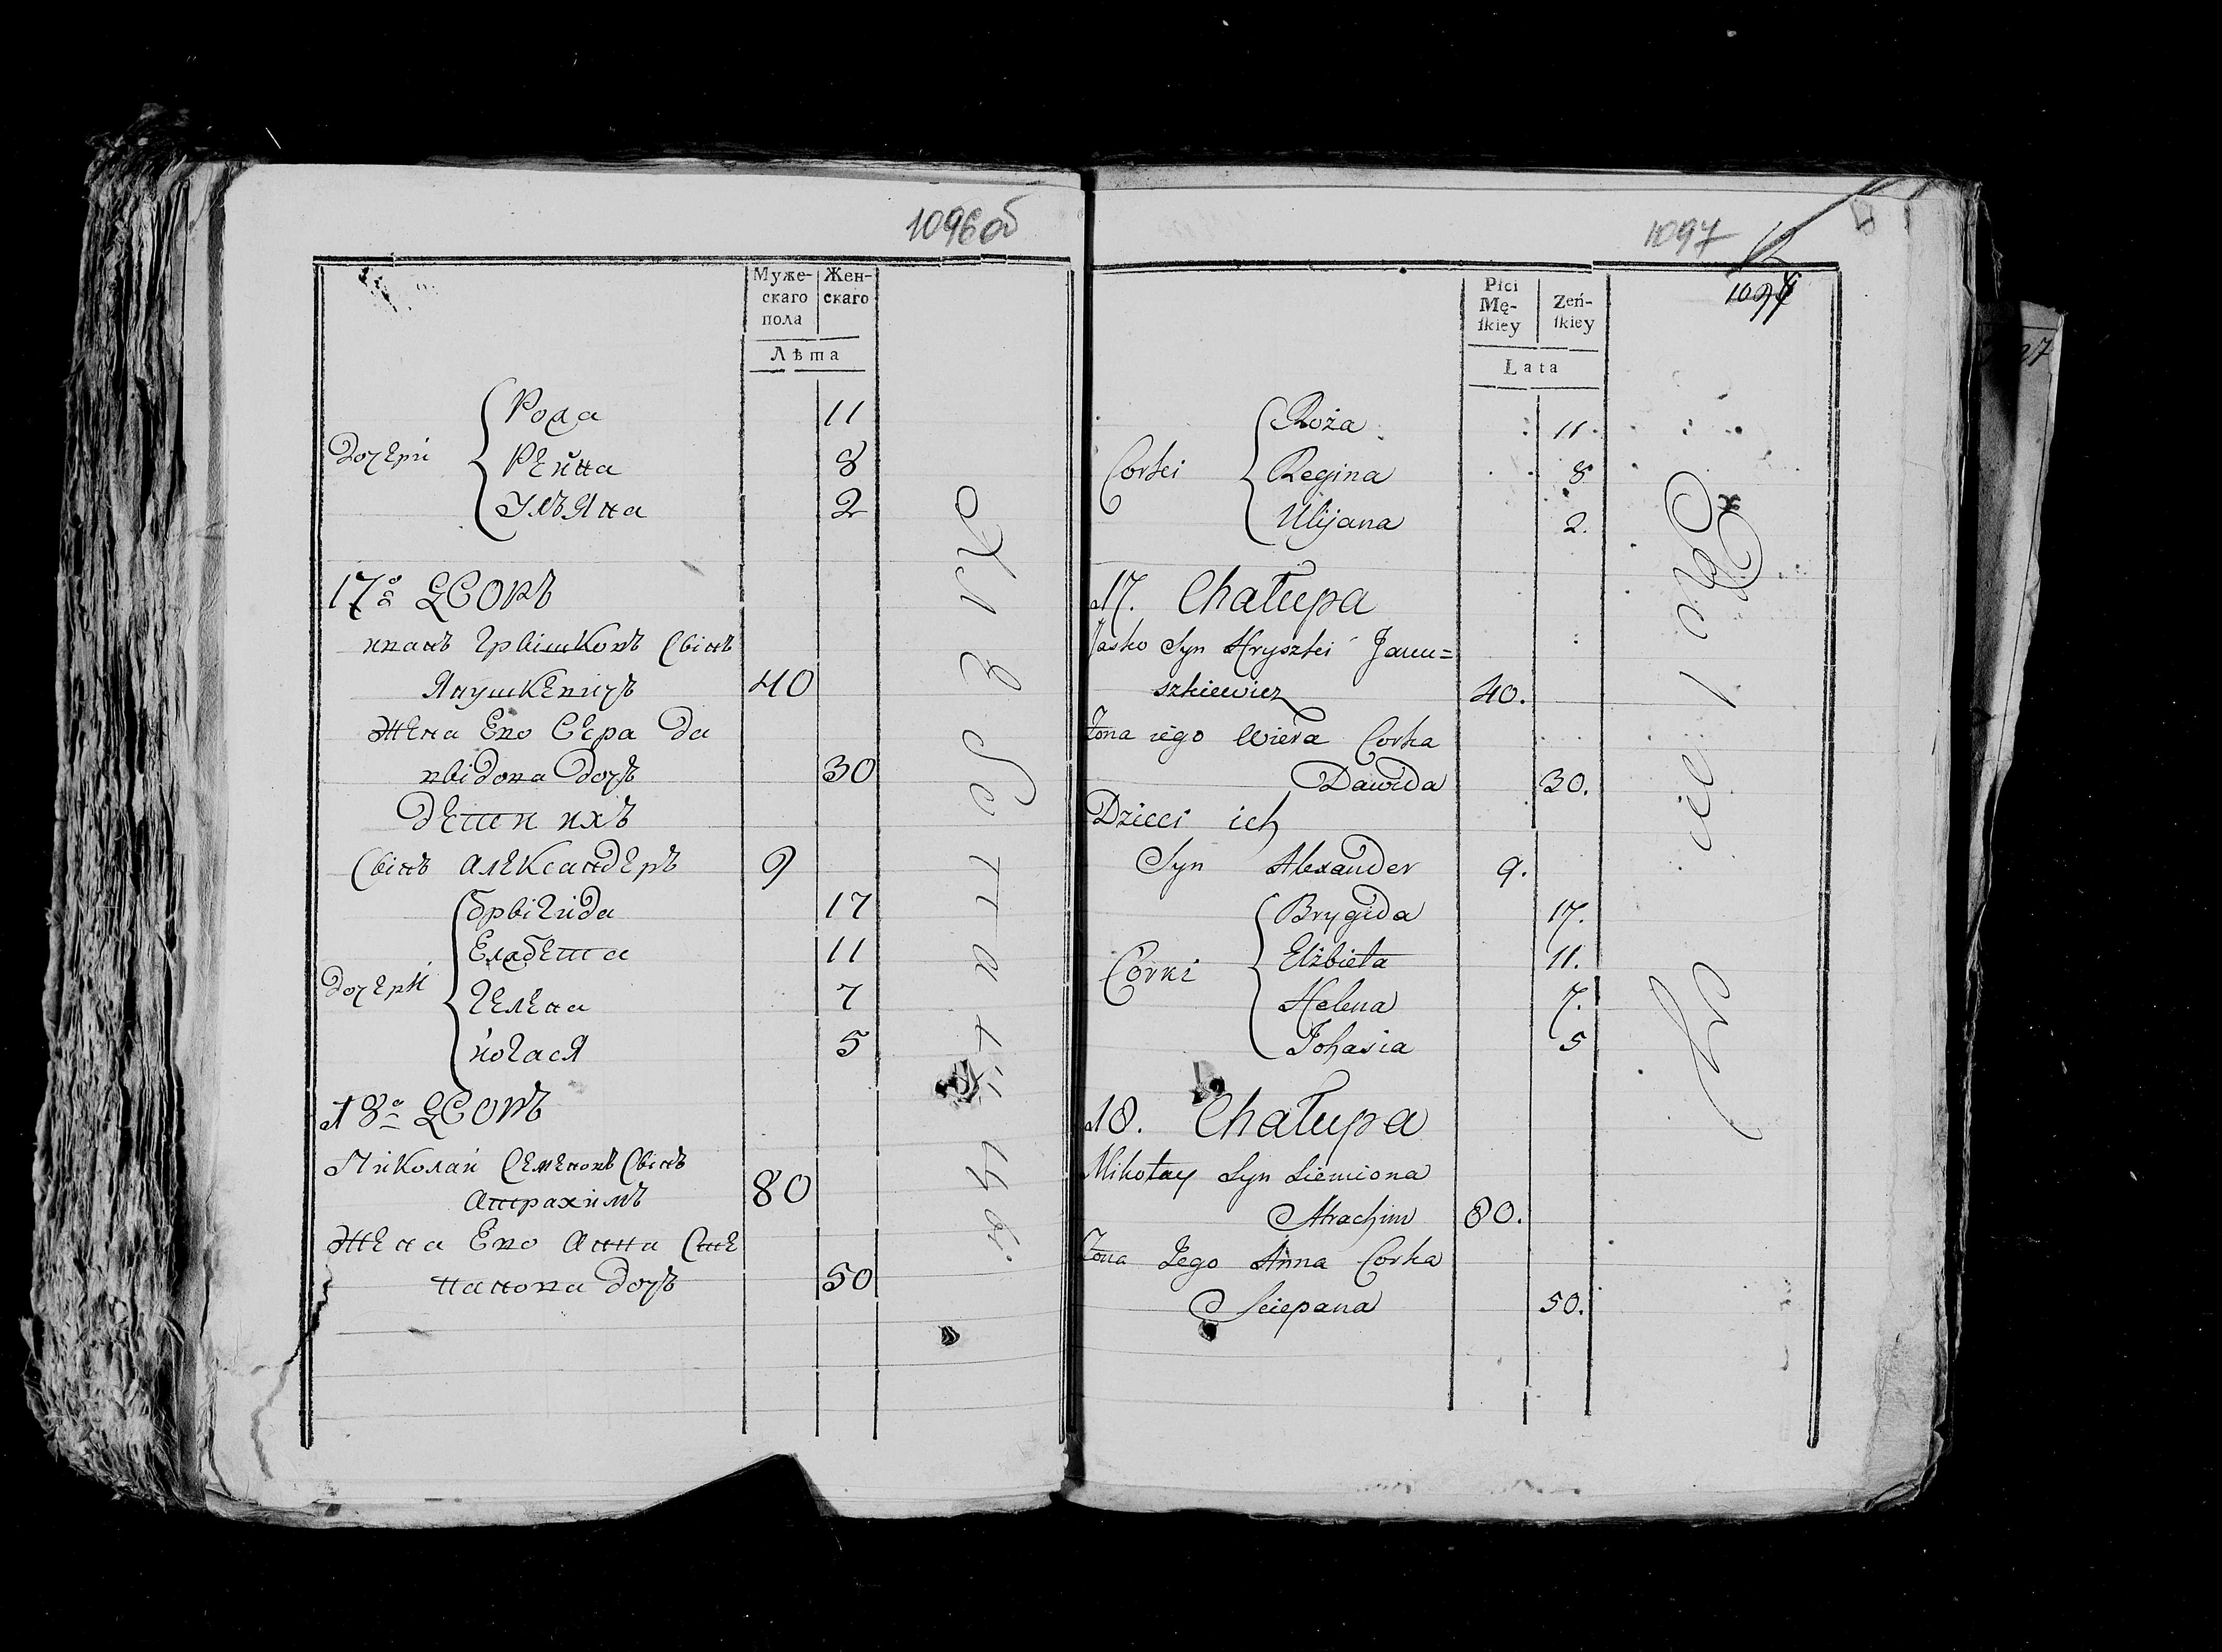 1096об
Муже-
скаго
пола
Жен-
скаго
Лѣта
Дочери
Роза 11
Реина 8
Ульяна 2
17й дворъ
иванъ Грышковъ Сынъ
Янушкевичъ 40
Жена Ево Вера да
выдова дочь 30
дети ихъ
Сынъ александеръ 9
дочери
брыгида 17
Елзбета 11
Гелена 7
йогася 5
18й дворъ
Николай Семеновъ Сынъ
атрахимъ 80
Жена Ево анна Сте
панова дочь 50
1097
1097
Płci
Mę-
ſkiey
Zeń-
ſkiey
Lata
Corki
Roża 11.
Regina 8
Ulijana 2.
17. Chałupa
Jaśko Syn Hryszki Janu=
szkiewicz 40.
Żona iego Wiera Corka
Dawida 30.
Dzieci ich
Syn Alexander 9.
Corki
Brygida 17.
Elżbieta 11.
Helena 7.
Johasia 5
18. Chałupa
Mikołay Syn Siemiona
Atrachim 80.
Żona Jego Anna Corka
Sciepana 50.